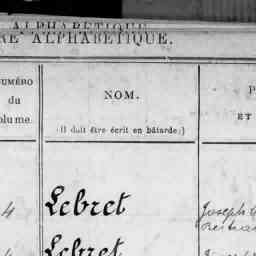 ALPHABÉTIQUE
RE ALPHABÉTIQUE.
NUMÉRO
du
volume.
NOM.
(Il doit être écrit en bâtarde.)
P
ET
4
Lebret
Joseph
4
Lebret